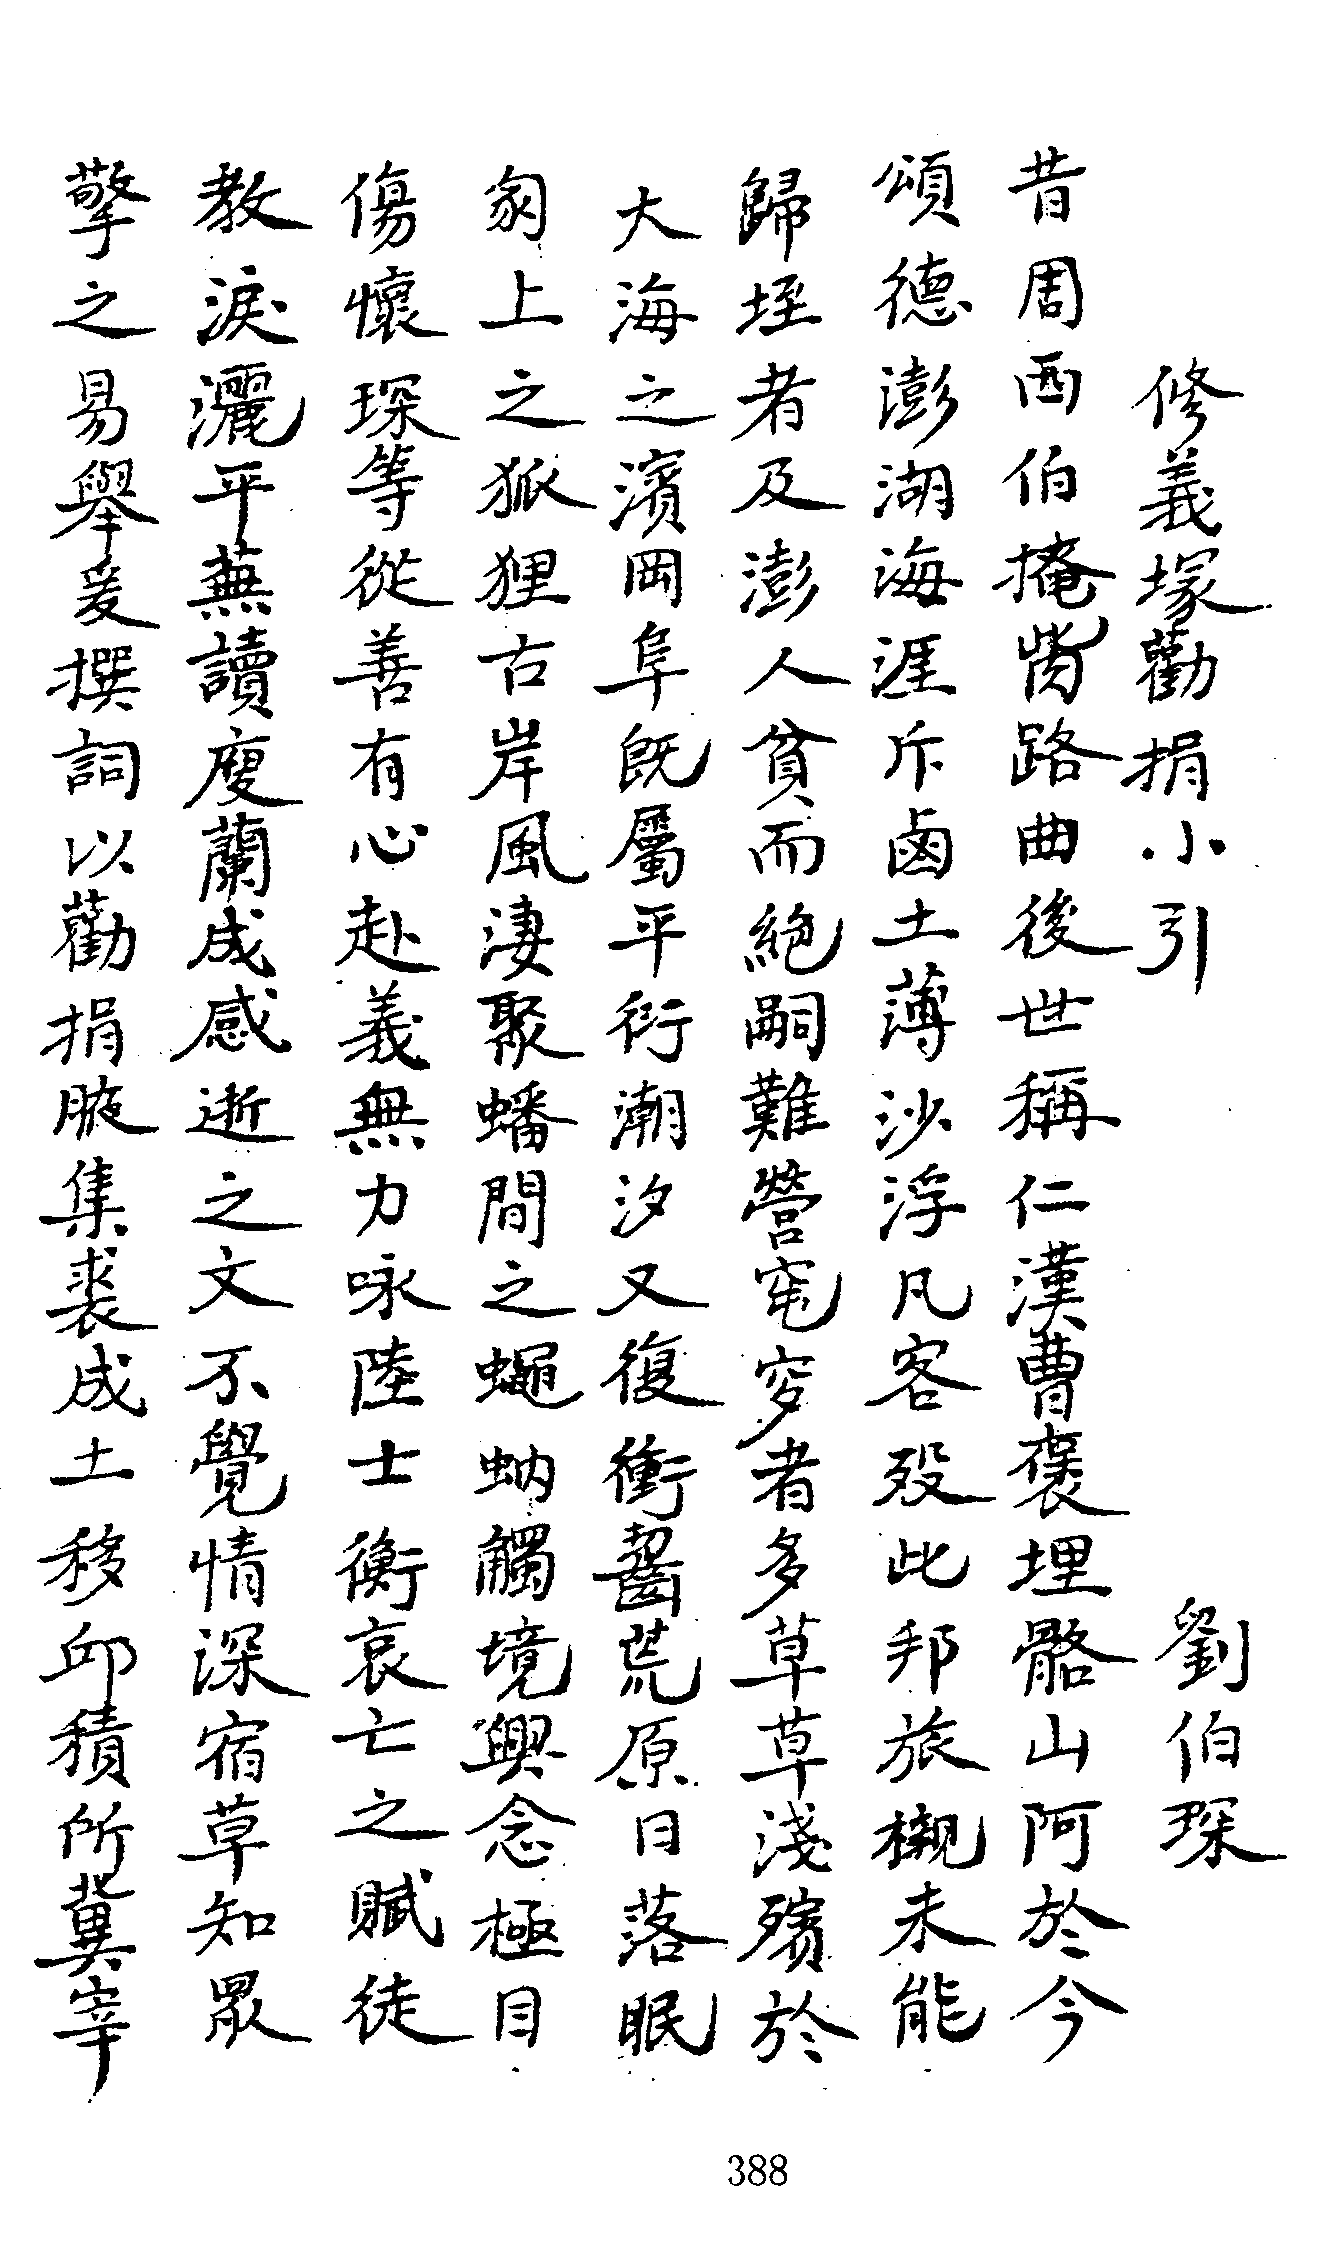 修義塚勸捐小引　劉伯琛
昔周西伯掩胔路曲後世稱仁漢曹褒埋骼山阿於今
頌德澎湖海涯斥鹵土薄沙浮凡客歿此邦旅櫬未能
歸垤者及澎人貧而絕嗣難營窀穸者多草草淺殯於
大海之濱岡阜既屬平衍潮汐又復衝齧荒原日落眠
冢上之狐狸古岸風淒聚蟠間之蠅蚋觸境興念極目
傷懷琛等從善有心赴義無力咏陸士衡哀亡之賦徒
教淚灑平蕪讀庾蘭成感逝之文不覺情深宿草知眾
擎之易舉爰撰詞以勸捐腋集裘成土移邱積所冀宰
388